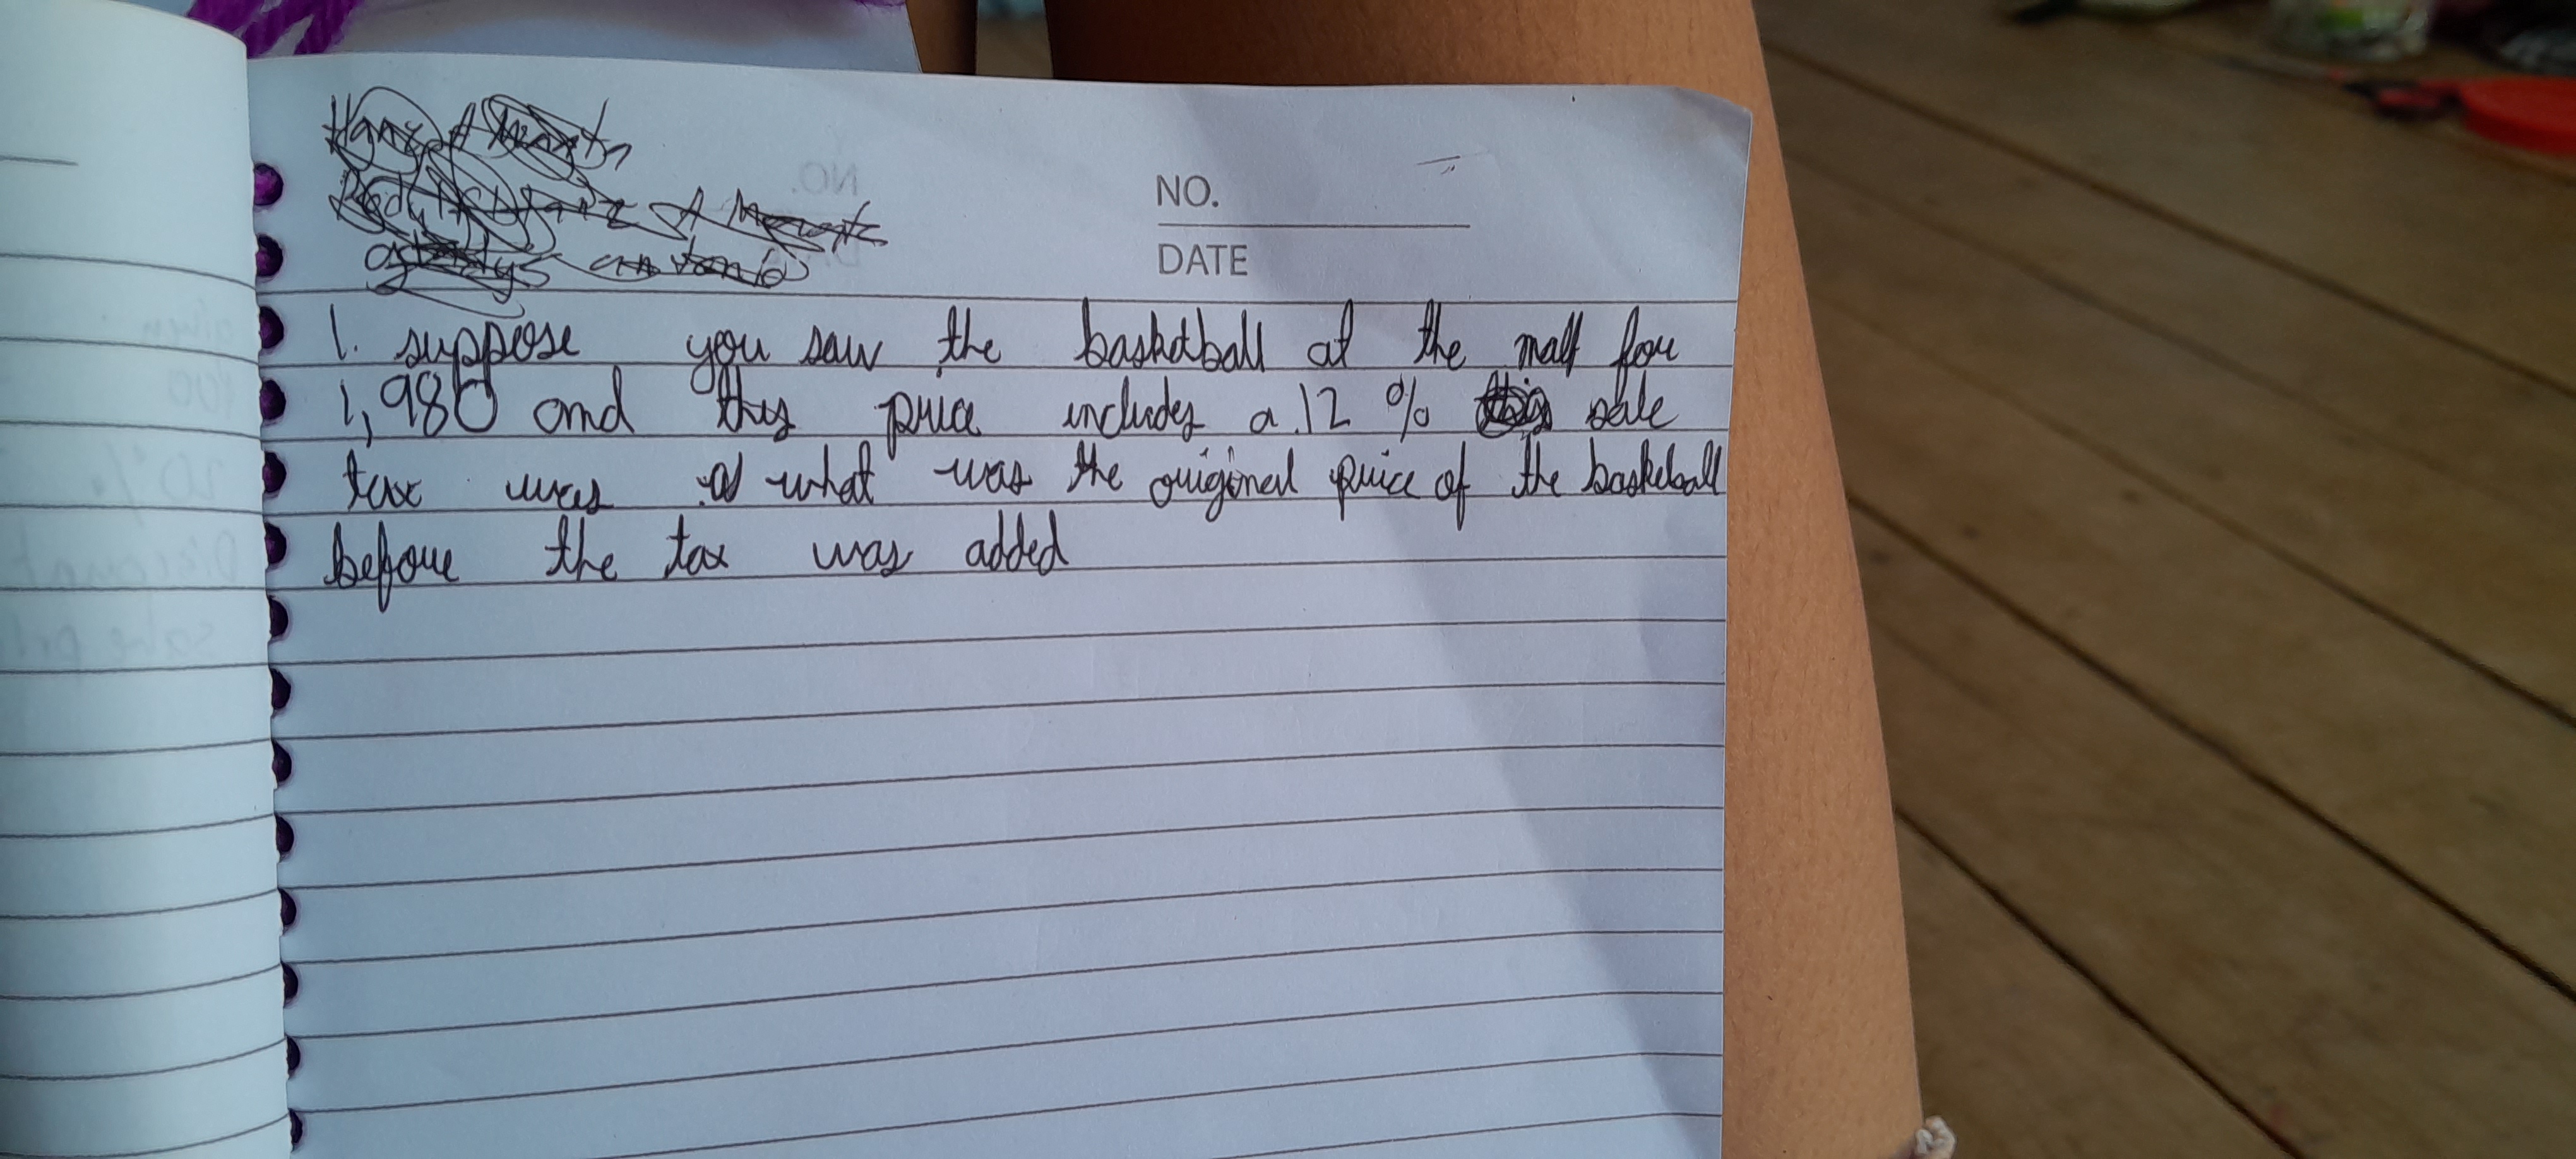 NO.
DATE
1. suppose you saw the basketball at the mall for
1,980 and this price includes a 12 % sale
tax was what was the original price of the basketball
before the tax was added